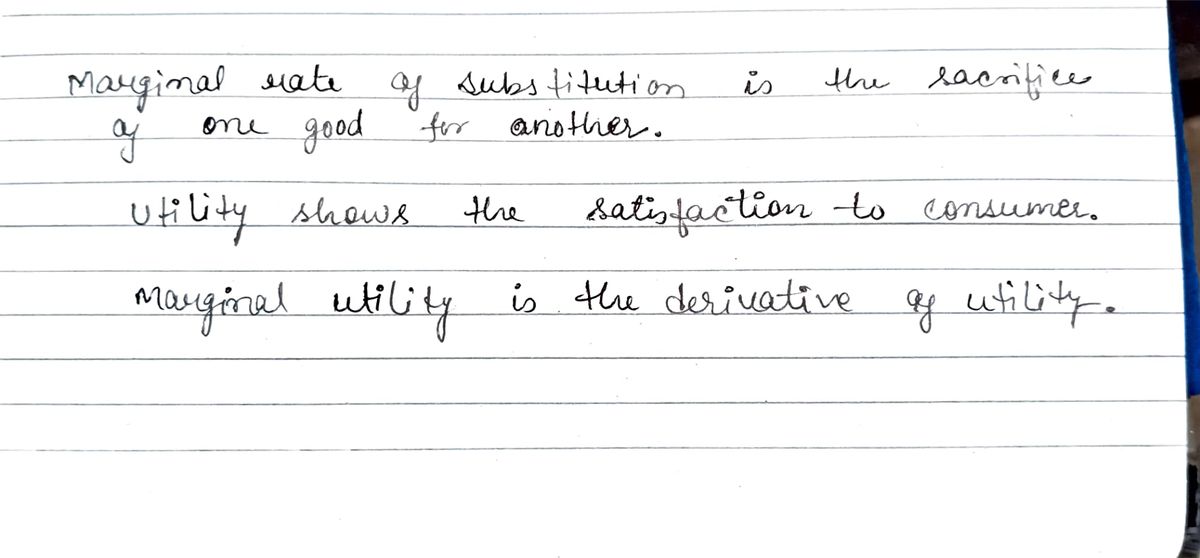 Marginal rate of substitution is the sacrifice
of one good for another.
Utility shows the satisfaction to consumer.
Marginal utility is the derivative of utility.